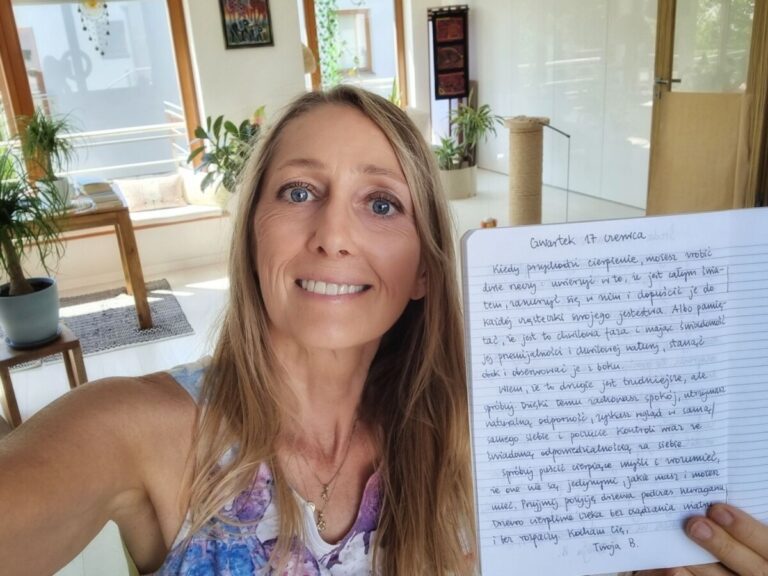 Czwartek 17 czerwca
Kiedy przychodzi cierpienie, możesz zrobić
dwie rzeczy: uwierzyć w to, że jest całym świa-
tem, zanurzyć się w nim i dopuścić je do
każdej cząsteczki swojego jestestwa. Albo pamię-
tać, że jest to chwilowa faza i mając świadomość
jej przemijalności i chwilowej natury, stanąć
obok i obserwować je z boku.
Wiem, że to drugie jest trudniejsze, ale
spróbuj. Dzięki temu zachowasz spokój, utrzymasz
naturalną odporność, zyskasz wgląd w samą/
samego siebie i poczucie kontroli wraz ze
świadomą odpowiedzialnością za siebie.
Spróbuj puścić cierpiące myśli i zrozumieć,
że one nie są jedynymi, jakie masz i możesz
mieć. Przyjmij pozycję drzewa podczas huraganu.
Drzewo cierpliwie czeka bez osądzania natury
i bez rozpaczy. Kocham Cię,
Twoja B.